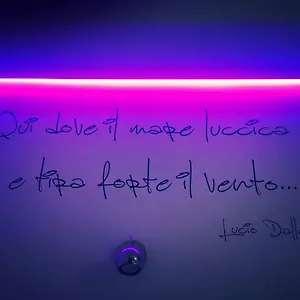 Qui dove il mare luccica
e tira forte il vento...
Lucio Dalla